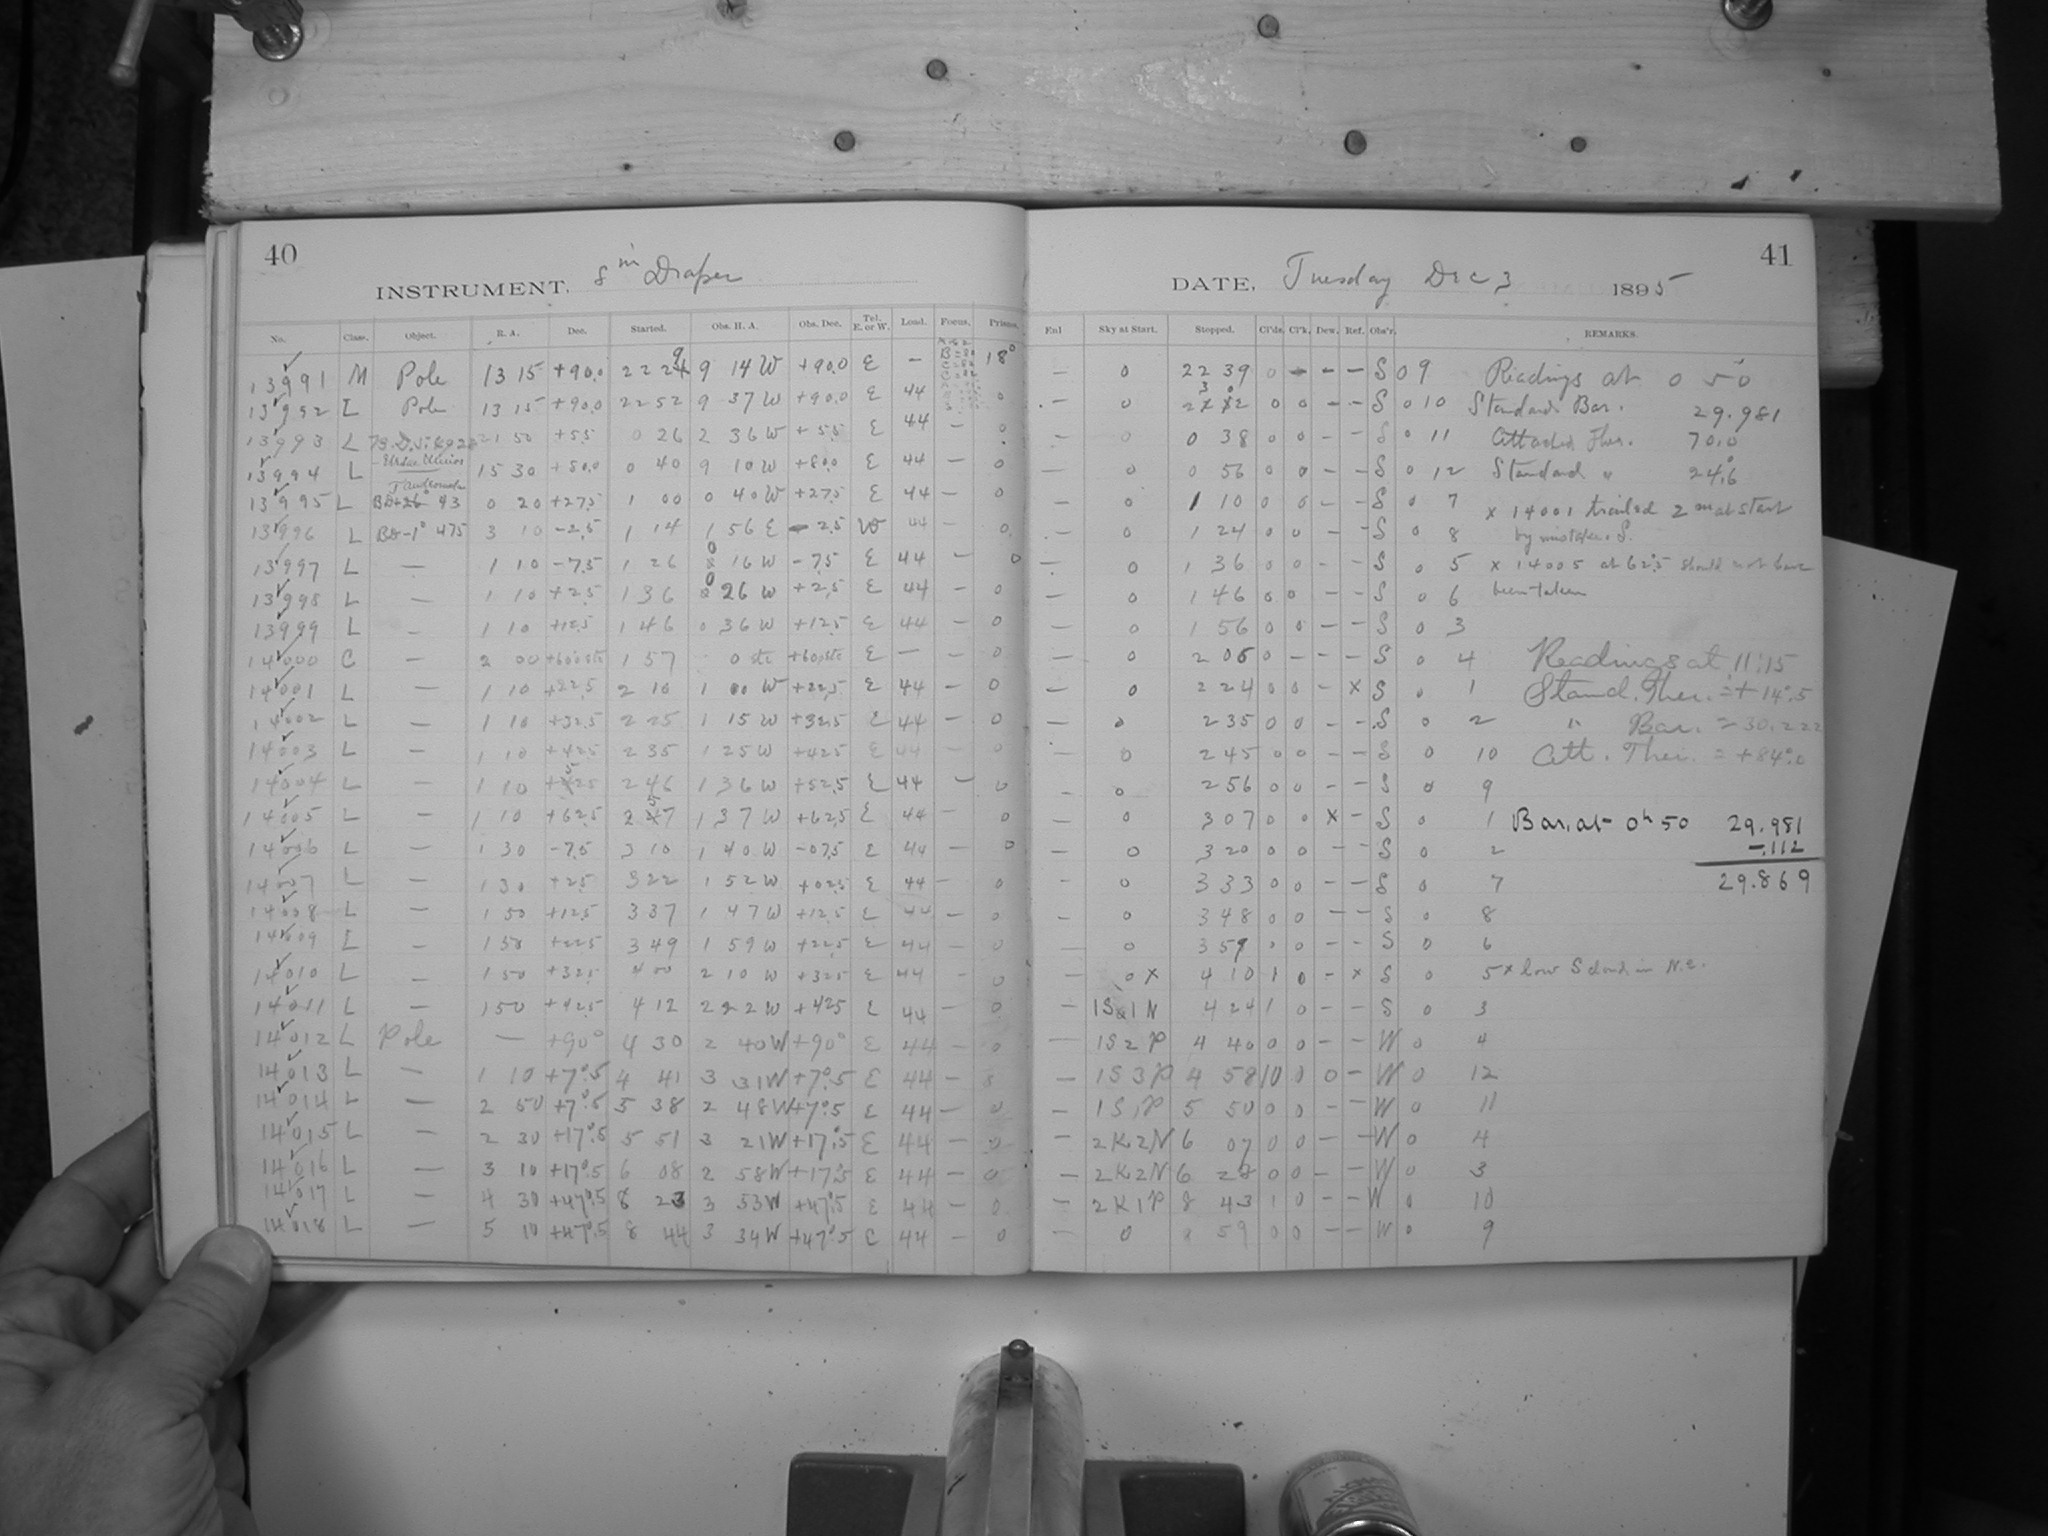 40
INSTRUMENT. 8 in Draper
No. Class. Object. R. A. Dec. Started. Obs. H. A. Obs. Dec. Tel. E. or W. Load. Focus. Prisms.
13991 M Pole 13 15 +90.0 22 24 9 14 W +90.0 E – 18°
13992 L Pole 13 15 +90.0 22 52 9 37 W +90.0 E 44 0
13993 L 21 50 +55 0 26 2 36 W +55 E 44 – 0
13994 L 15 30 +80.0 0 40 9 10 W +80.0 E 44 – 0
13995 L 0 20 +27.5 1 00 0 40 W +27.5 E 44 – 0
13996 L BD –1° 475 3 10 –2.5 1 14 1 56 E –2.5 W 44 – 0
13997 L — 1 10 –7.5 1 26 0 16 W –7.5 E 44 – 0
13998 L — 1 10 +2.5 1 36 0 26 W +2.5 E 44 – 0
13999 L — 1 10 +12.5 1 46 0 36 W +12.5 E 44 – 0
14000 C — 2 00 1 57 E — – 0
14001 L — 1 10 +22.5 2 10 1 00 W +22.5 E 44 – 0
14002 L — 1 10 +32.5 2 25 1 15 W +32.5 E 44 – 0
14003 L — 1 10 +42.5 2 35 1 25 W +42.5 E 44 – 0
14004 L — 1 10 +52.5 2 46 1 36 W +52.5 E 44 – 0
14005 L — 1 10 +62.5 2 57 1 37 W +62.5 E 44 – 0
14006 L — 1 30 –7.5 3 10 1 40 W –07.5 E 44 – 0
14007 L — 1 30 +2.5 3 22 1 52 W +02.5 E 44 – 0
14008 L — 1 50 +12.5 3 37 1 47 W +12.5 E 44 – 0
14009 L — 1 50 +22.5 3 49 1 59 W +22.5 E 44 – 0
14010 L — 1 50 +32.5 4 00 2 10 W +32.5 E 44 – 0
14011 L — 1 50 +42.5 4 12 2 22 W +42.5 E 44 – 0
14012 L Pole — +90° 4 30 2 40 W +90° E 44 – 0
14013 L — 1 10 +7°.5 4 41 3 31 W +7°.5 E 44 – 0
14014 L — 2 50 +7°.5 5 38 2 48 W +7°.5 E 44 – 0
14015 L — 2 30 +17°.5 5 51 3 21 W +17°.5 E 44 – 0
14016 L — 3 10 +17°.5 6 08 2 58 W +17°.5 E 44 – 0
14017 L — 4 30 +47°.5 8 23 3 53 W +47°.5 E 44 – 0
14018 L — 5 10 +47°.5 8 44 3 34 W +47°.5 E 44 – 0
41
DATE. Tuesday Dec 3 1895
Enl Sky at Start. Stopped. Cl'ds. Cl'k. Dew. Ref. Obs'r. REMARKS.
— 0 22 39 0 – – – S 0 9 Readings at 0 50
— 0 0 0 – – S 0 10 Standard Bar. 29.981
— 0 0 38 0 0 – – S 0 11 Attached Ther. 70.0
— 0 0 56 0 0 – – S 0 12 Standard " 24.6
— 0 1 10 0 0 – – S 0 7 x 14001 trailed 2 m at start
— 0 1 24 0 0 – – S 0 8 by mistake. S.
— 0 1 36 0 0 – – S 0 5 x 14005 at 62.5 should not have
— 0 1 46 0 0 – – S 0 6 been taken
— 0 1 56 0 0 – – S 0 3
— 0 2 06 0 – – – S 0 4 Readings at 11:15
— 0 2 24 0 0 – x S 0 1 Stand. Ther. = +14°.5
— 0 2 35 0 0 – – S 0 2 " Bar. = 30.222
— 0 2 45 0 0 – – S 0 10 Att. Ther. = +84°.0
— 0 2 56 0 0 – – S 0 9
— 0 3 07 0 0 x – S 0 1 Bar. at 0h 50 29.981
— 0 3 20 0 0 – – S 0 2 –.112
— 0 3 33 0 0 – – S 0 7 29.869
— 0 3 48 0 0 – – S 0 8
— 0 3 59 0 0 – – S 0 6
— 0 x 4 10 1 0 – x S 0 5 x low S cloud in N.E.
— 1S&1N 4 24 1 0 – – S 0 3
— 1S2P 4 40 0 0 – – W 0 4
— 1S3P 4 58 10 0 0 – W 0 12
— 1S1P 5 50 0 0 – – W 0 11
— 2K2N 6 07 0 0 – – W 0 4
— 2K2N 6 28 0 0 – – W 0 3
— 2K1P 8 43 1 0 – – W 0 10
— 0 8 59 0 0 – – W 0 9